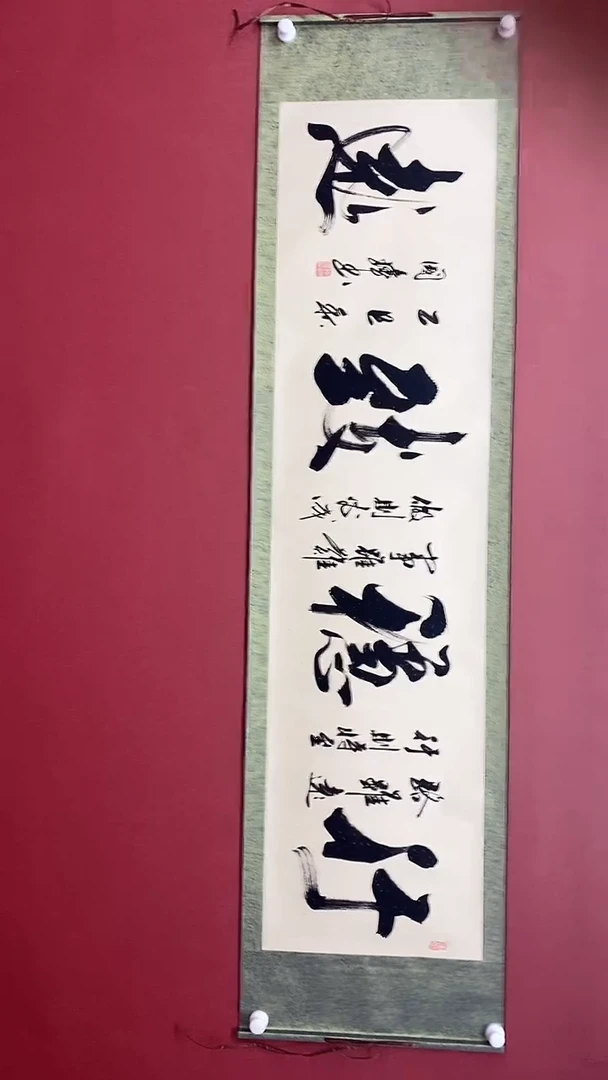 行
路雖遠
行則將至
穩
事雖難
做則必成
致
乙巳秋
國
書
遠